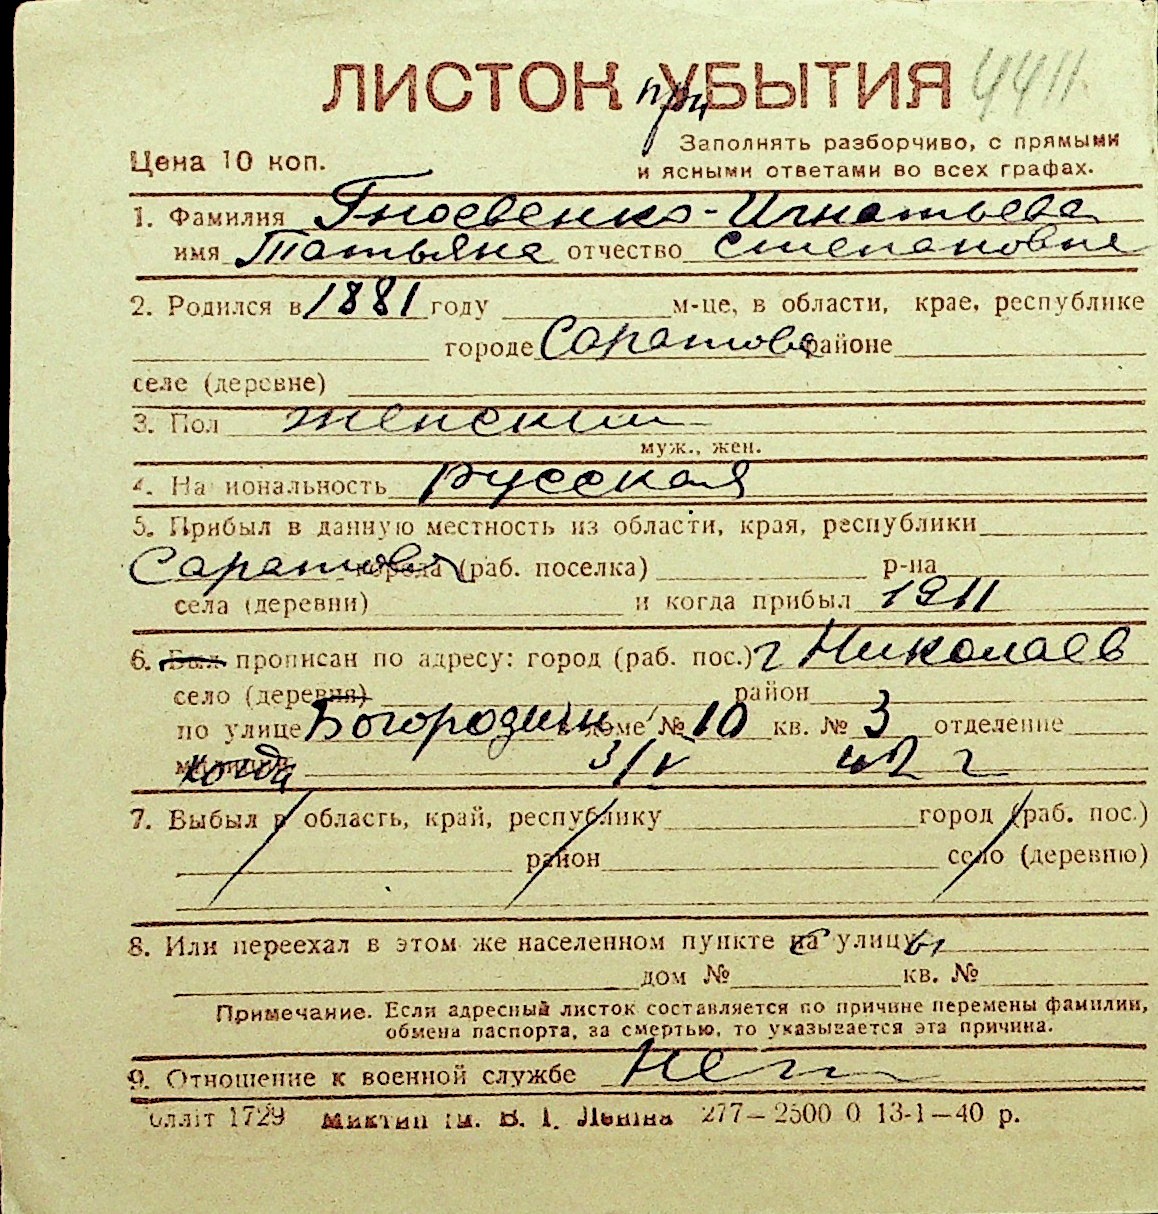 ЛИСТОК при УБЫТИЯ 4411.
Заполнять разборчиво, с прямыми
Цена 10 коп. и ясными ответами во всех графах.
1. Фамилия Гноевенко-Игнатьева
имя Татьяна отчество Степановна
2. Родился в 1881 году м-це, в области, крае, республике
городе Саратове районе
селе (деревне)
3. Пол женский
муж., жен.
4. На иональность русская
5. Прибыл в данную местность из области, края, республики
Саратова города (раб. поселка) р-на
села (деревни) и когда прибыл 1911
6. Был прописан по адресу: город (раб. пос.) г Николаев
село (деревня) район
по улице Богородичн доме № 10 кв. № 3 отделение
когда 3/V 42 г
7. Выбыл в область, край, республику город (раб. пос.)
район село (деревню)
8. Или переехал в этом же населенном пункте с улицы
дом № кв. №
Примечание. Если адресный листок составляется по причине перемены фамилии,
обмена паспорта, за смертью, то указывается эта причина.
9. Отношение к военной службе Нет
блліт 1729 Миктип ім. В. І. Леніна 277—2500 0 13-1—40 р.